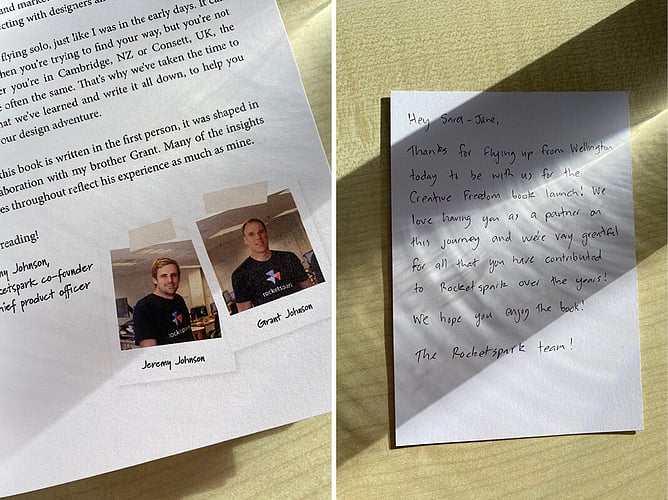 and marke
cting with designers a
flying solo, just like I was in the early days. It ca
hen you're trying to find your way, but you're not
er you're in Cambridge, NZ or Consett, UK, the
often the same. That's why we've taken the time to
hat we've learned and write it all down, to help you
our design adventure.
this book is written in the first person, it was shaped in
aboration with my brother Grant. Many of the insights
es throughout reflect his experience as much as mine.
reading!
my Johnson,
cketspark co-founder
hief product officer
rocketspark
rocketspark
Jeremy Johnson
Grant Johnson
Hey Sara-Jane,
Thanks for flying up from Wellington
today to be with us for the
Creative Freedom book launch! We
love having you as a partner on
this journey and we're very grateful
for all that you have contributed
to Rocketspark over the years!
We hope you enjoy the book!
The Rocketspark team!